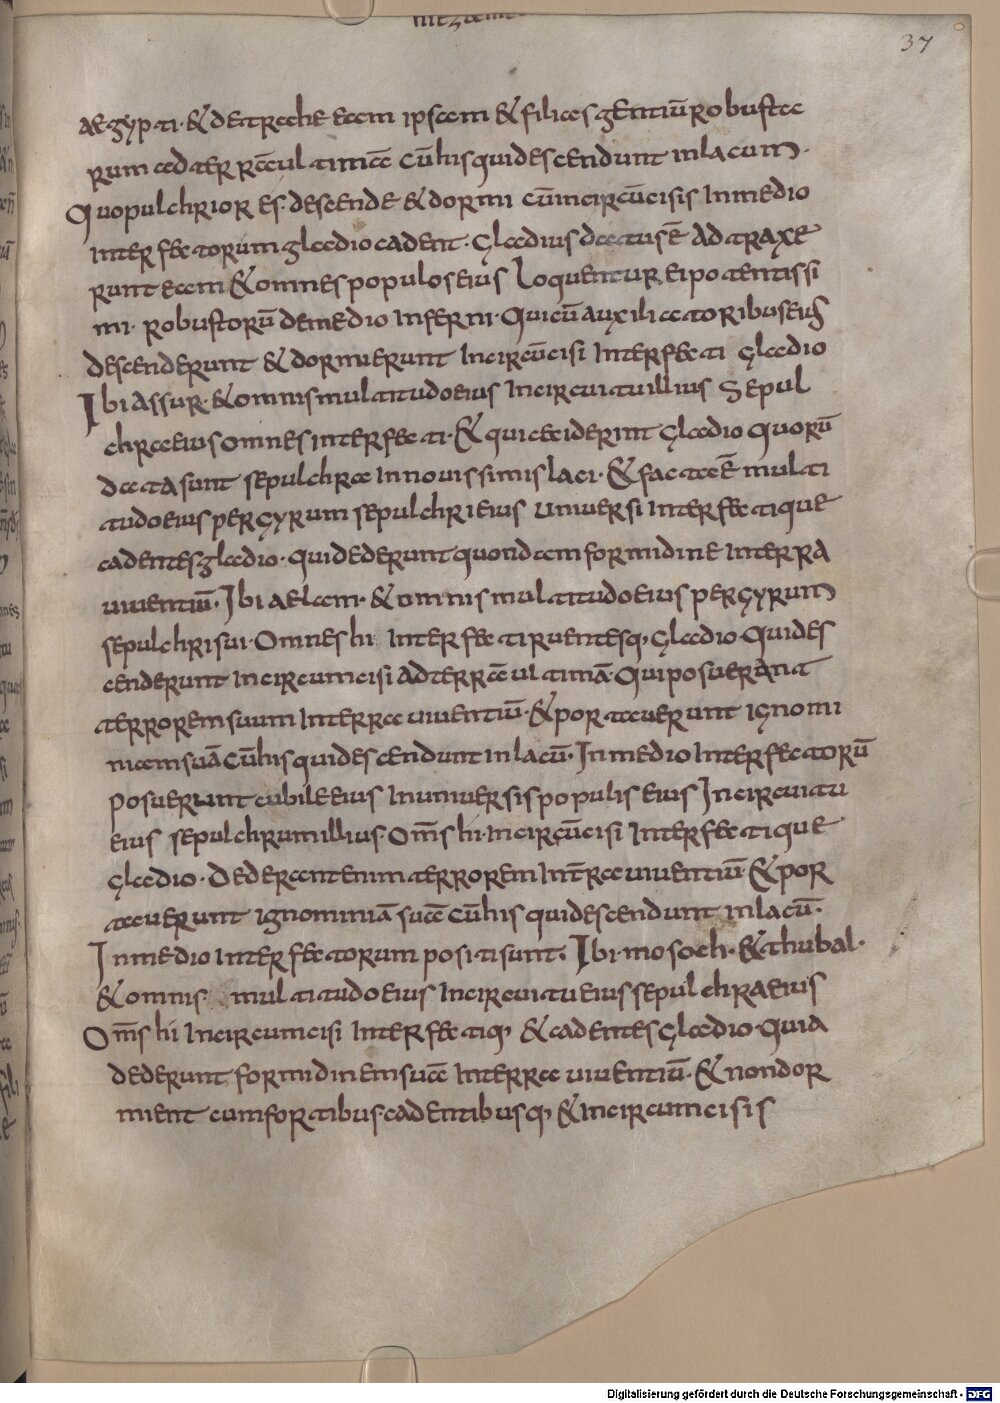 37
aegypti· & detrahe eam ipsam & filias gentiū robusta
rum ad terrā ultimā cū his qui descendunt in lacum·
Quo pulchrior es· descende & dormi cū incircūcisis In medio
interfectorum gladio cadent· Gladius datus ē adtraxe
runt eam & omnes populos eius Loquentur ei potentissi
mi· robustorū de medio inferni· Qui cū auxiliatoribus eius
descenderunt & dormierunt Incircūcisi Interfecti gladio
Ibi assur· & omnis multitudo eius In circuitu illius Sepul
chra eius omnes interfecti· & qui ceciderunt gladio quorū
data sunt sepulchra In novissimis laci· & facta ē multi
tudo eius per gyrum sepulchri eius universi Interfectique
cadentes gladio· qui dederunt quondam formidine In terra
viventiū· Ibi aelam· & omnis multitudo eius per gyrum
sepulchri sui· Omnes hi Interfecti ruentesq, gladio· Qui des
cenderunt Incircumcisi ad terrā ultimā· Qui posuerant
terrorem suum In terra viventiū· & portaverunt ignomi
niam suā cū his qui descendunt in lacū· In medio Interfectorū
posuerunt cubile eius In universis populis eius In circuitu
eius sepulchrum illius· Om̄s hi· Incircūcisi Interfectique
gladio· Dederant enim terrorem In tr̄ra viventiū· & por
taverunt ignominiā suā cū his qui descendunt in lacū·
In medio Interfectorum positi sunt· Ibi· mosoch· & thubal·
& omnis· multitudo eius In circuitu eius sepulchra eius
Om̄s hi Incircumcisi Interfectiq, & cadentes gladio· Quia
dederunt formidinem suā In terra viventiū· & non dor
mient cum fortibus· cadentibusq, & incircumcisis
Digitalisierung gefördert durch die Deutsche Forschungsgemeinschaft - DFG